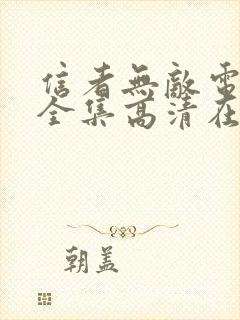 信者無敵電
全集高清在
朝盖